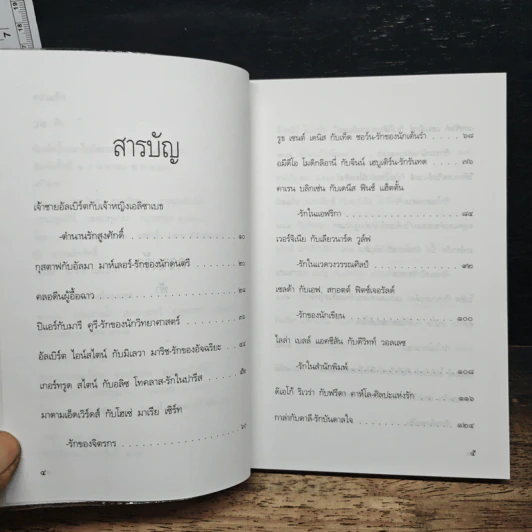 สารบัญ
เจ้าชายอัลเบิร์ตกับเจ้าหญิงเอลิซาเบธ
-ตำนานรักสูงศักดิ์ ๑๐
กุสตาฟกับอัลมา มาห์เลอร์-รักของนักดนตรี ๒๐
คลอดีนผู้อื้อฉาว ๒๘
ปิแอร์กับมารี คูรี-รักของนักวิทยาศาสตร์
อัลเบิร์ต ไอน์สไตน์ กับมิเลวา มาริช-รักของอัจฉริยะ ๔๔
เกอร์ทรูด สไตน์ กับอลิซ โทคลาส-รักในปารีส
มาดามเอ็ดเวิร์ดส์ กับโฮเซ่ มาเรีย เซิร์ท
-รักของจิตรกร
๔
รูธ เซนต์ เดนิส กับเท็ด ชอว์น-รักของนักเต้นรำ ๖๘
อมีดิโอ โมดิกลิอานี่ กับจีนน์ เฮบูเติร์น-รักรันทด ๗๖
คาเรน บลิกเซ่น กับเดนิส ฟินช์ แฮ็ตตั้น
-รักในแอฟริกา ๘๔
เวอร์จิเนีย กับเลียวนาร์ด วูล์ฟ
-รักในแวดวงวรรณศิลป์ ๙๒
เซลด้า กับเอฟ. สกอตต์ ฟิตซ์เจอรัลด์
-รักของนักเขียน ๑๐๐
ไลล่า เบลล์ แอคชีสัน กับดีวิทท์ วอลเลซ
-รักในสำนักพิมพ์ ๑๐๘
ดิเอโก้ ริเวร่า กับฟรีดา คาห์โล-ศิลปะแห่งรัก ๑๑๖
กาล่ากับดาลี-รักบันดาลใจ ๑๒๔
๕